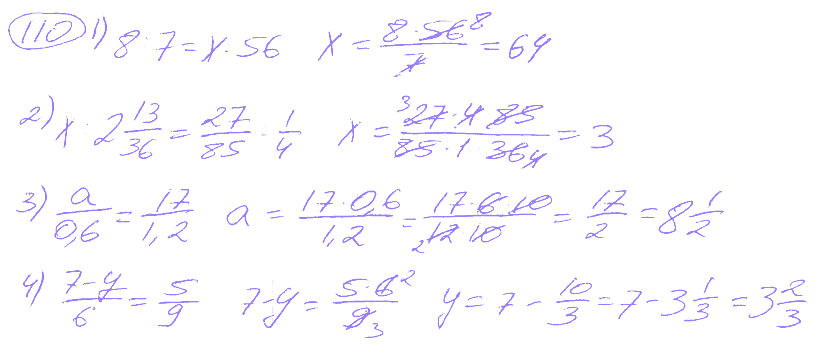 110 1) 8 : 7 = x : 56 x = (8 · 56⁸)/7 = 64
2) x : 2 13/36 = 27/85 : 1/4 x = (³27 · 4 · 85)/(85 · 1 · 36₄) = 3
3) a/0,6 = 17/1,2 a = (17 · 0,6)/1,2 = (17 · 6 · 10)/(₂12 · 10) = 17/2 = 8 1/2
4) (7-y)/6 = 5/9 7-y = (5 · 6²)/9₃ y = 7 - 10/3 = 7 - 3 1/3 = 3 2/3